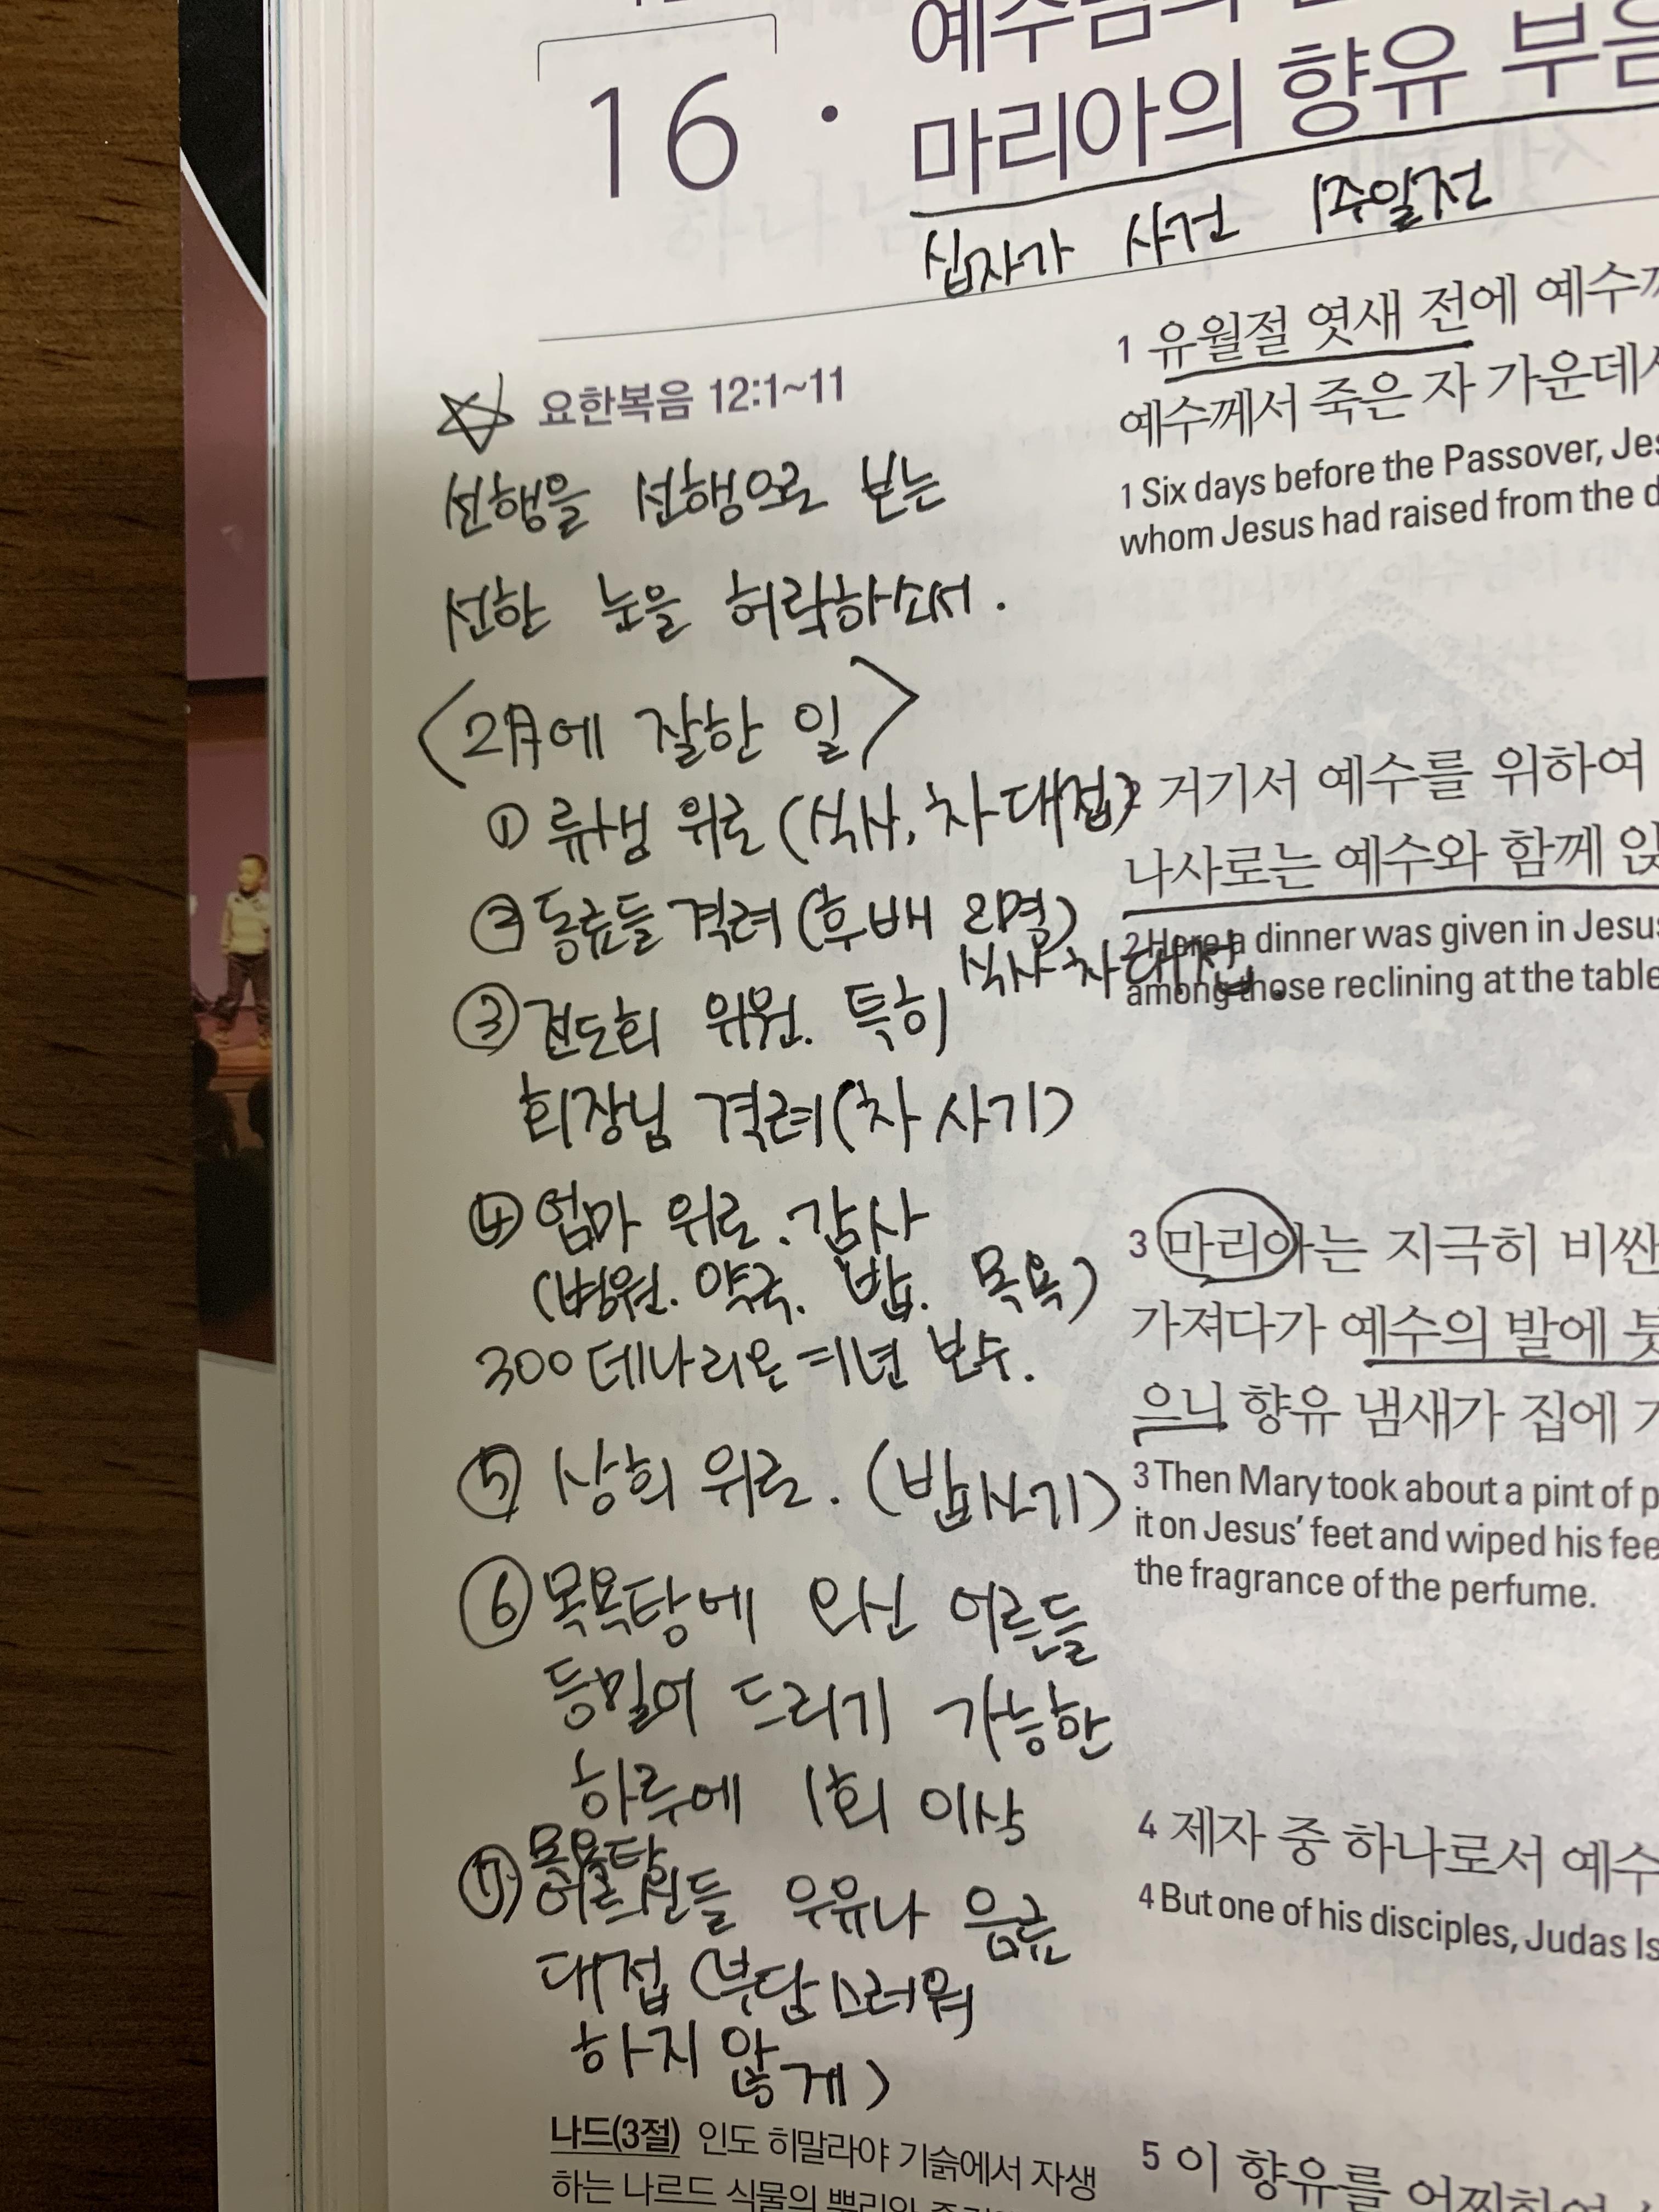 16 ·
예수님의
마리아의 향유 부음
십자가 사건 1주일전
요한복음 12:1~11
선행을 선행으로 보는
선한 눈을 허락하소서.
<2月에 잘한 일>
① 류사생 위로 (식사, 차 대접)
② 동료들 격려 (후배 2명)
식사 차 대접.
③ 전도회 위원. 특히
회장님 격려 (차 사기)
④ 엄마 위로. 감사
(병원. 약국. 밥. 목욕)
300데나리온 = 1년 보수.
⑤ 상희 위로. (밥사기)
⑥ 목욕탕에 오신 어른들
등밀어 드리기 가능한
하루에 1회 이상
⑦ 목욕탕
어르신들 우유나 음료
대접 (부담스러워
하지 않게)
나드(3절) 인도 히말라야 기슭에서 자생
하는 나르드 식물의 뿌리와
1 유월절 엿새 전에 예수께
예수께서 죽은 자 가운데서
1 Six days before the Passover, Jes
whom Jesus had raised from the d
2 거기서 예수를 위하여
나사로는 예수와 함께 앉
2 Here a dinner was given in Jesus
among those reclining at the table
3 마리아는 지극히 비싼
가져다가 예수의 발에 붓
으니 향유 냄새가 집에 가
3 Then Mary took about a pint of p
it on Jesus' feet and wiped his fee
the fragrance of the perfume.
4 제자 중 하나로서 예수
4 But one of his disciples, Judas Is
5 이 향유를 어찌하여